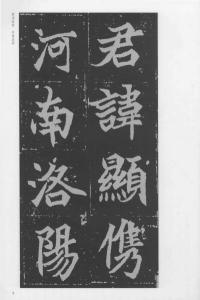 君諱顯儁
河南洛陽